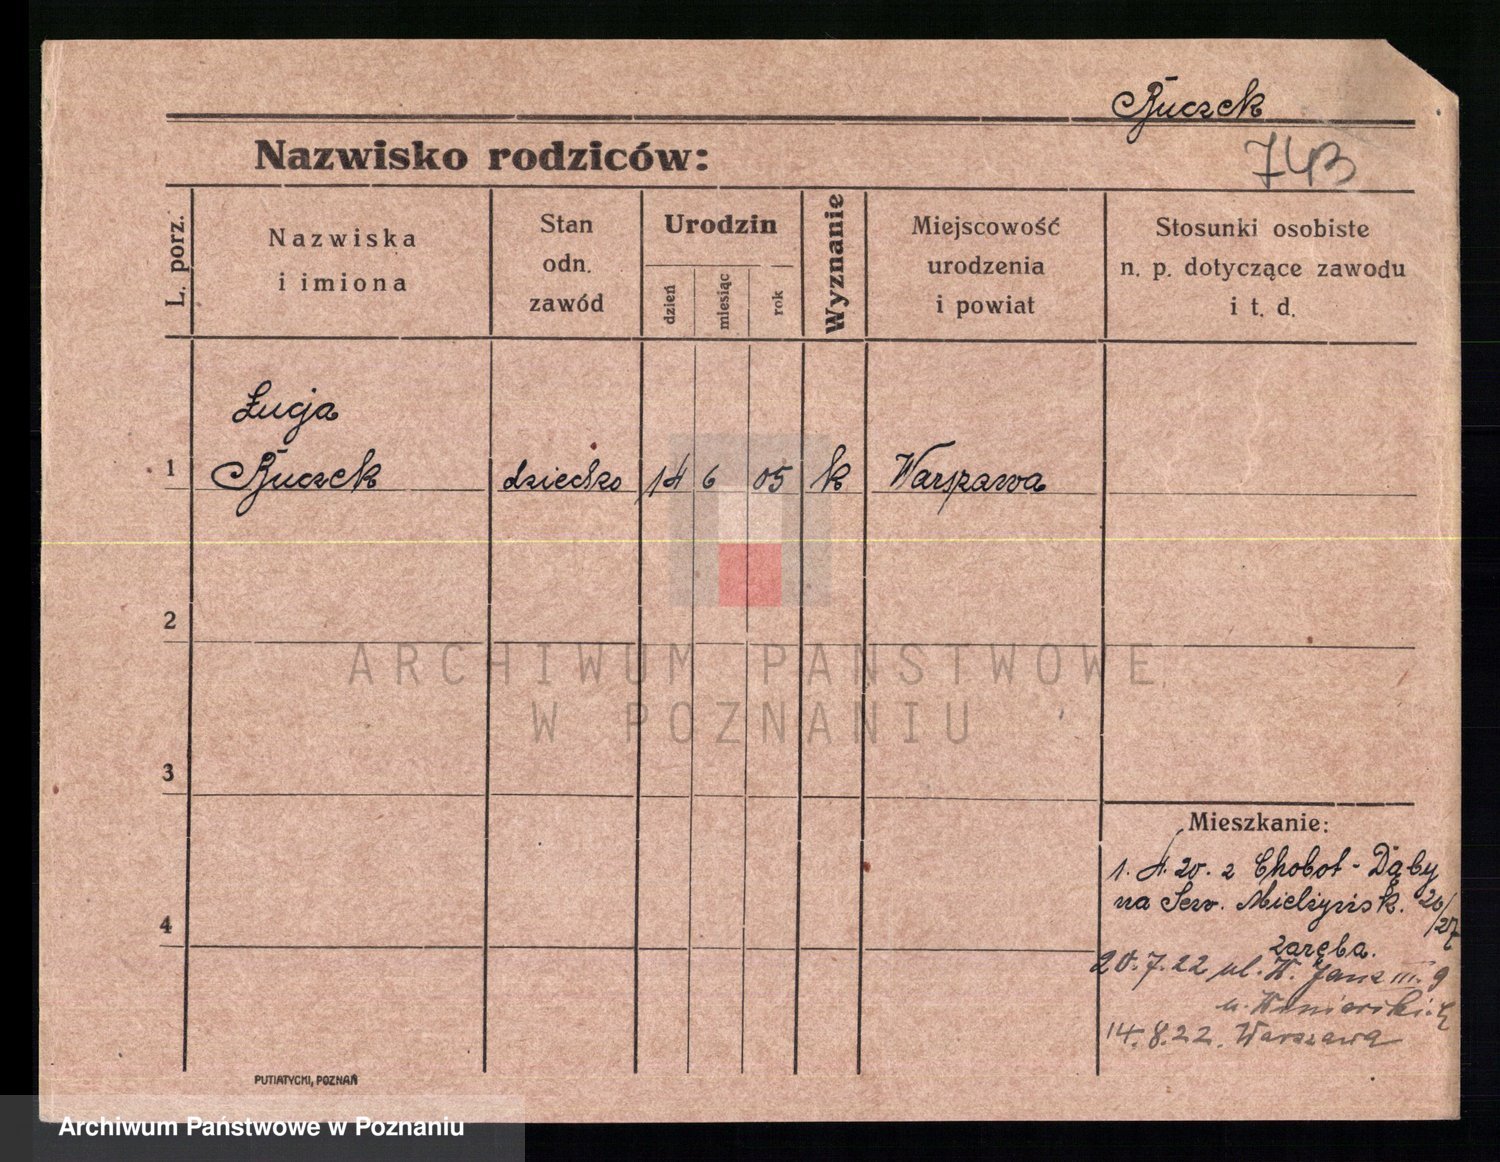 Ruczek
Nazwisko rodziców:
743
L. porz.
Nazwiska
i imiona
Stan
odn.
zawód
Urodzin
dzień
miesiąc
rok
Wyznanie
Miejscowość
urodzenia
i powiat
Stosunki osobiste
n. p. dotyczące zawodu
i t. d.
Łucja
1 Ruczek dziecko 14 6 05 k Warszawa
2
3
4
ARCHIWUM PAŃSTWOWE
W POZNANIU
Mieszkanie:
1. 4. 20. z Chobot - Dąby
na Sew. Mielżyńsk. 26/27
Zaręba.
20.7.22 ul. K. Jana III. 9
14.8.22. Warszawa
PUTIATYCKI, POZNAŃ
Archiwum Państwowe w Poznaniu